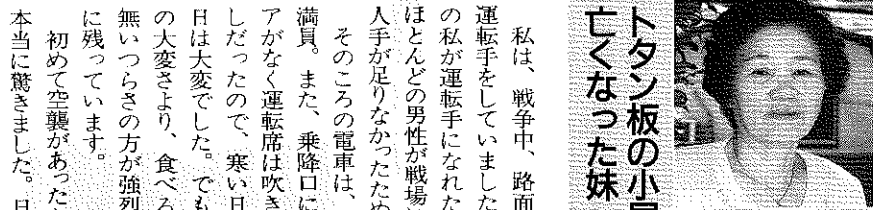 トタン板の小
亡くなった妹
私は、戦争中、路面
運転手をしていました
の私が運転手になれた
ほとんどの男性が戦場
人手が足りなかったため
そのころの電車は、
満員。また、乗降口に
アがなく運転席は吹き
しだったので、寒い日
日は大変でした。でも
の大変さより、食べ
無いつらさの方が強烈
に残っています。
初めて空襲があった
本当に驚きました。